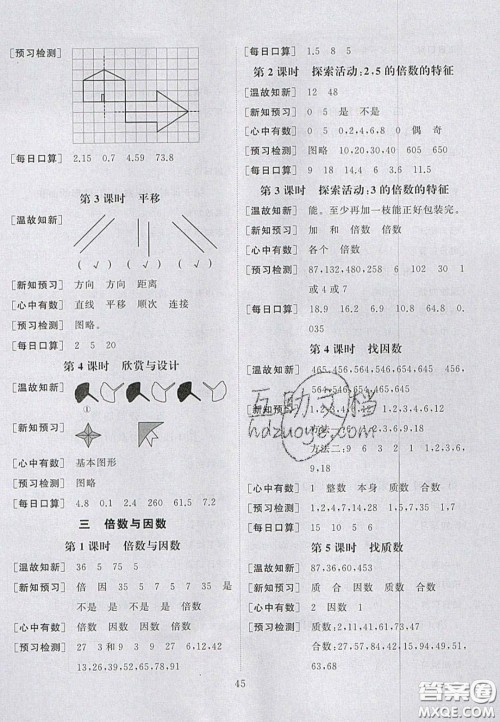 [预习检测]
[每日口算] 2.15 0.7 4.59 73.8
第3课时 平移
[温故知新]
(√) ( ) (√)
[新知预习] 方向 方向 距离
[心中有数] 直线 平移 顺次 连接
[预习检测] 图略。
[每日口算] 2 5 20
第4课时 欣赏与设计
[温故知新]
①
[新知预习]
[心中有数] 基本图形
[预习检测] 图略
[每日口算] 4.8 0.1 2.4 260 61.5 7.2
三 倍数与因数
第1课时 倍数与因数
[温故知新] 36 5 75 5
[新知预习] 倍 因 35 5 7 5 7 35 是
不是 不是 是 倍数
[心中有数] 倍数 因数 因数 倍数
[预习检测] 27 3和9 3 9 9 27 6,12,42
13,26,39,52,65,78,91
[每日口算] 1.5 8 5
第2课时 探索活动:2,5的倍数的特征
[温故知新] 12 48
[新知预习] 0 5 是 不是
[心中有数] 0 5 0,2,4,6,8 0 偶 奇
[预习检测] 图略 10,20,30,40 605 650
[每日口算] 9 18 14.4 6 3.6 2.4
第3课时 探索活动:3的倍数的特征
[温故知新] 能。至少再加一枝能正好包装完。
[新知预习] 加 和 倍数 倍数
[心中有数] 各个 倍数
[预习检测] 87,132,480,258 6 102 30 1
或4或7
[每日口算] 18.9 16.2 6.9 19.8 64.8 0.
035
第4课时 找因数
[温故知新] 465,456,564,546,654,645 456,
564,546,654,645
[新知预习] 1,2,3,6,9,18 1,2,3,4,6,12
方法一
方法二:9 6 3 2 1 1,2,3,6,
9,18
[心中有数] 1 整数 本身 质数 合数
[预习检测] 1,2,4,7,14,28 1,3,5,15 7
[每日口算] 15 10 5 6
第5课时 找质数
[温故知新] 87,36,60,453
[新知预习] 质 合 因数 因数 因数
[心中有数] 2 因数 1
[预习检测] 质数:2,11,41,61,73,47
合数:27,32,44,57,15,94,49,51,
63,68
45
互助文档
hdzuoye.com
答案圈
MXQE.COM